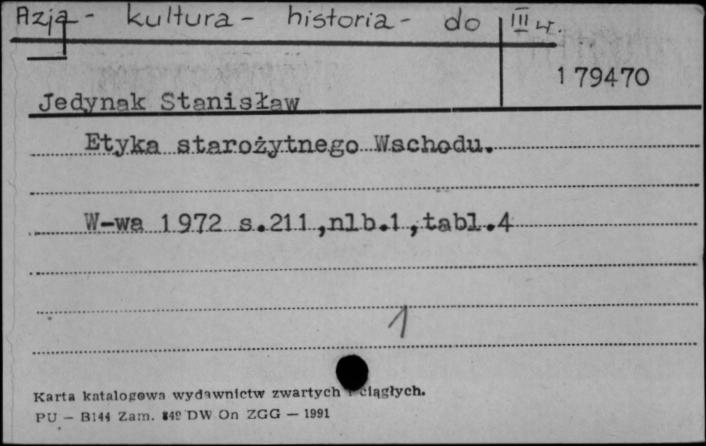 Azja - kultura - historia - do III w.
179470
Jedynak Stanisław
Etyka starożytnego Wschodu.
W-wa 1972 s.211,nlb.1,tabl.4
1
Karta katalogowa wydawnictw zwartych i ciągłych.
PU — B144 Zam. 849 DW On ZGG — 1991